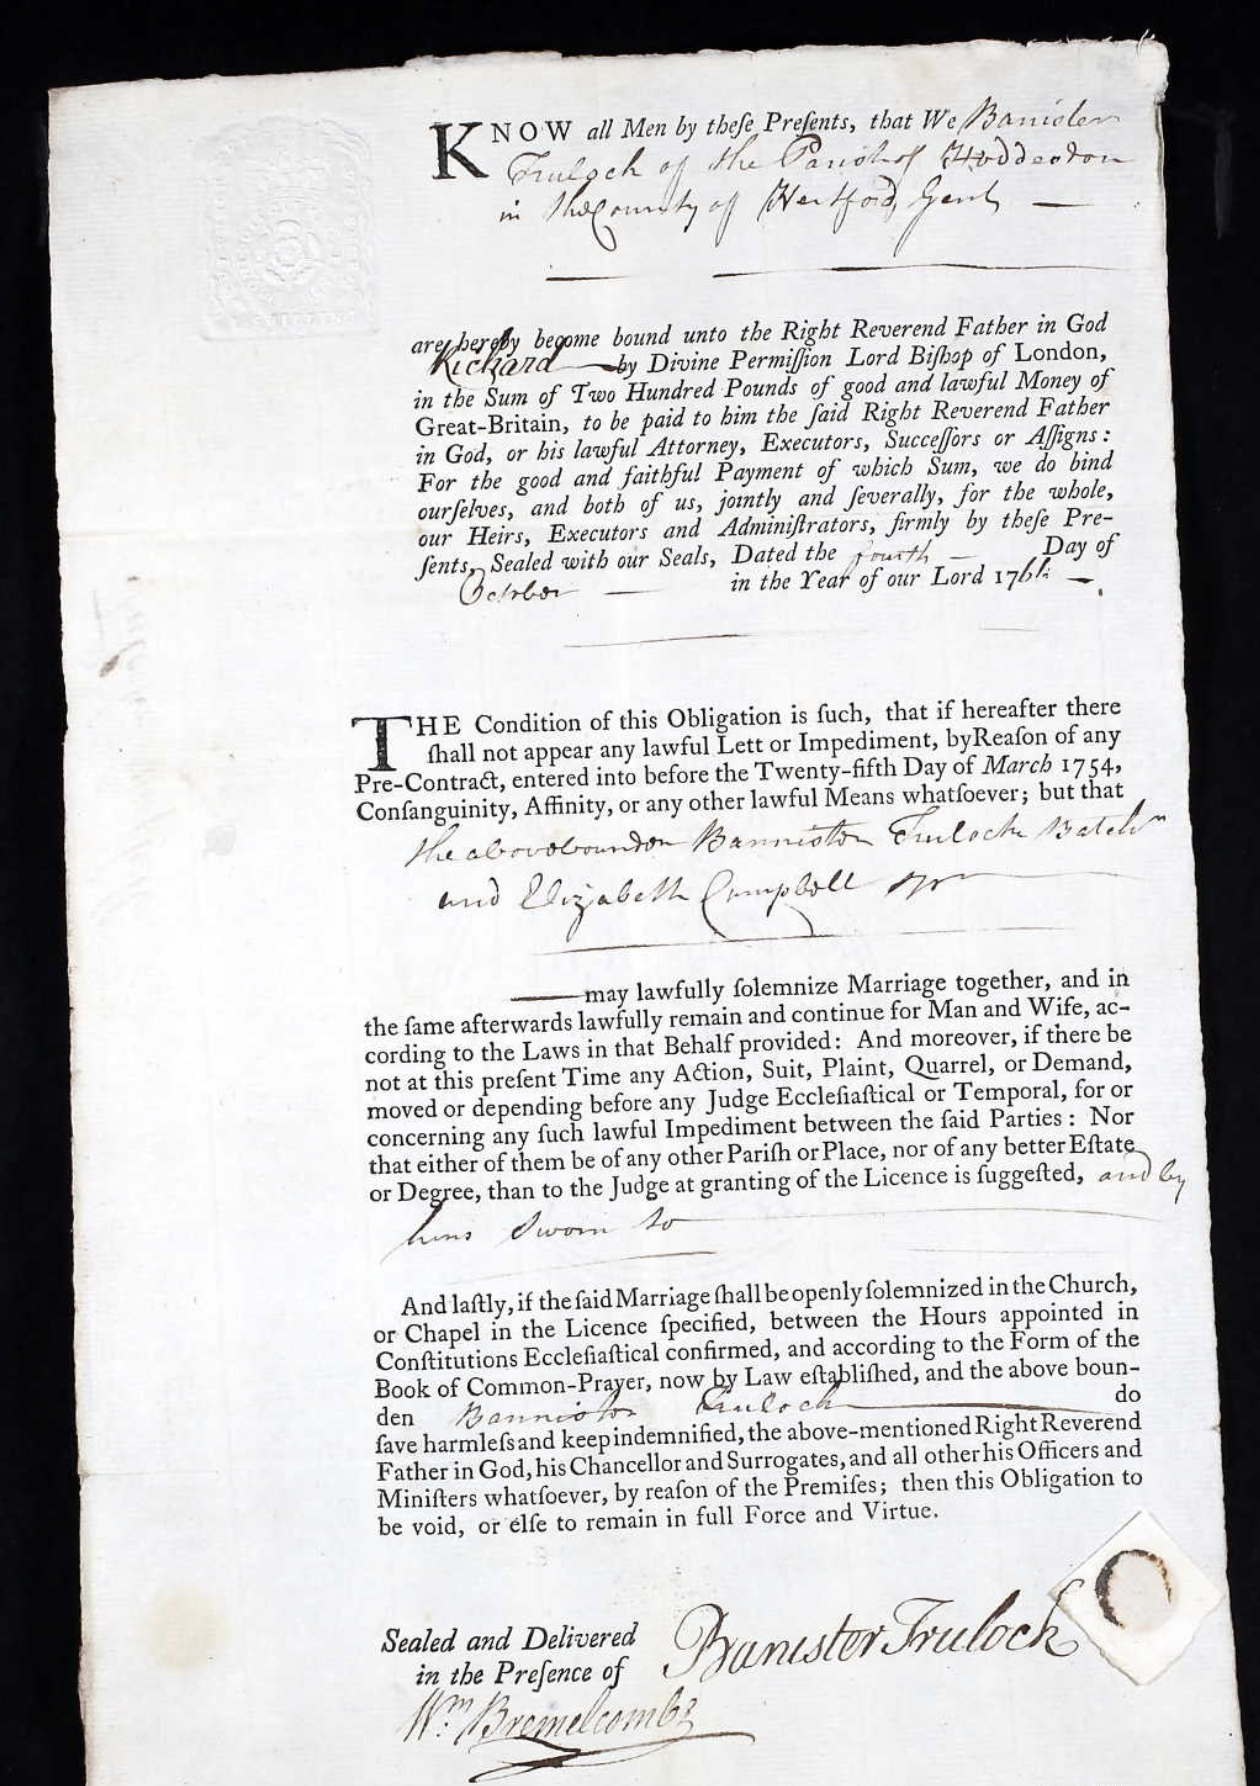 KNOW all Men by theſe Preſents, that We Banister
Trulock of the Parish of Hoddesdon
in the County of Hertford, Gent
are hereby become bound unto the Right Reverend Father in God
Richard by Divine Permiſſion Lord Biſhop of London,
in the Sum of Two Hundred Pounds of good and lawful Money of
Great-Britain, to be paid to him the ſaid Right Reverend Father
in God, or his lawful Attorney, Executors, Succeſſors or Aſſigns:
For the good and faithful Payment of which Sum, we do bind
ourſelves, and both of us, jointly and ſeverally, for the whole,
our Heirs, Executors and Adminiſtrators, firmly by theſe Pre-
ſents, Sealed with our Seals, Dated the fourth Day of
October in the Year of our Lord 1764
THE Condition of this Obligation is ſuch, that if hereafter there
ſhall not appear any lawful Lett or Impediment, by Reaſon of any
Pre-Contract, entered into before the Twenty-fifth Day of March 1754,
Conſanguinity, Affinity, or any other lawful Means whatſoever; but that
the abovebounden Bannister Trulock Batchr
and Elizabeth Campbell spr
may lawfully ſolemnize Marriage together, and in
the ſame afterwards lawfully remain and continue for Man and Wife, ac-
cording to the Laws in that Behalf provided: And moreover, if there be
not at this preſent Time any Action, Suit, Plaint, Quarrel, or Demand,
moved or depending before any Judge Eccleſiaſtical or Temporal, for or
concerning any ſuch lawful Impediment between the ſaid Parties: Nor
that either of them be of any other Pariſh or Place, nor of any better Eſtate
or Degree, than to the Judge at granting of the Licence is ſuggeſted, and by
him Sworn to
And laſtly, if the ſaid Marriage ſhall be openly ſolemnized in the Church,
or Chapel in the Licence ſpecified, between the Hours appointed in
Conſtitutions Eccleſiaſtical confirmed, and according to the Form of the
Book of Common-Prayer, now by Law eſtabliſhed, and the above boun-
den Bannister Trulock do
ſave harmleſs and keep indemnified, the above-mentioned Right Reverend
Father in God, his Chancellor and Surrogates, and all other his Officers and
Miniſters whatſoever, by reaſon of the Premiſes; then this Obligation to
be void, or elſe to remain in full Force and Virtue.
Sealed and Delivered
in the Preſence of
Banister Trulock
Wm. Bremelcombe